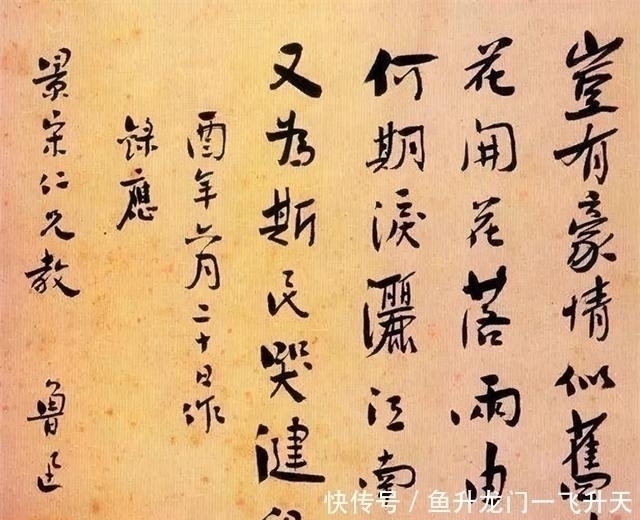 豈有豪情似舊
花開花落兩由
何期淚灑江南
又為斯民哭健
酉年六月二十日作
錄應
景宋仁兄教
魯迅
快传号 / 鱼升龙门一飞升天